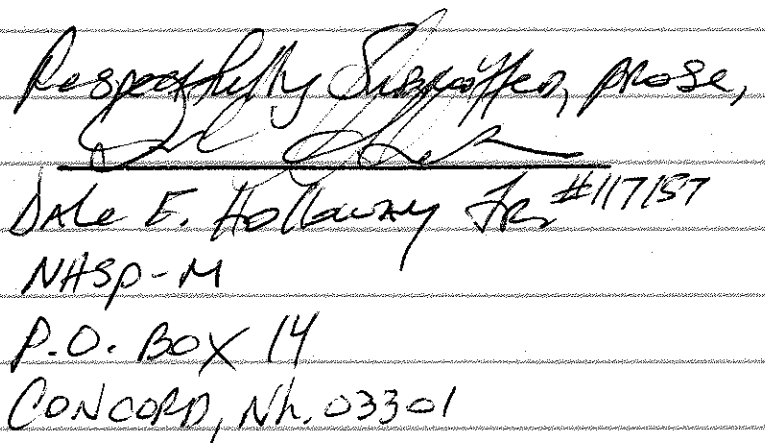 Respectfully Submitted, prose,
Dale E. Holloway Jr. #117157
NHSP-M
P.O. BOX 14
CONCORD, Nh. 03301